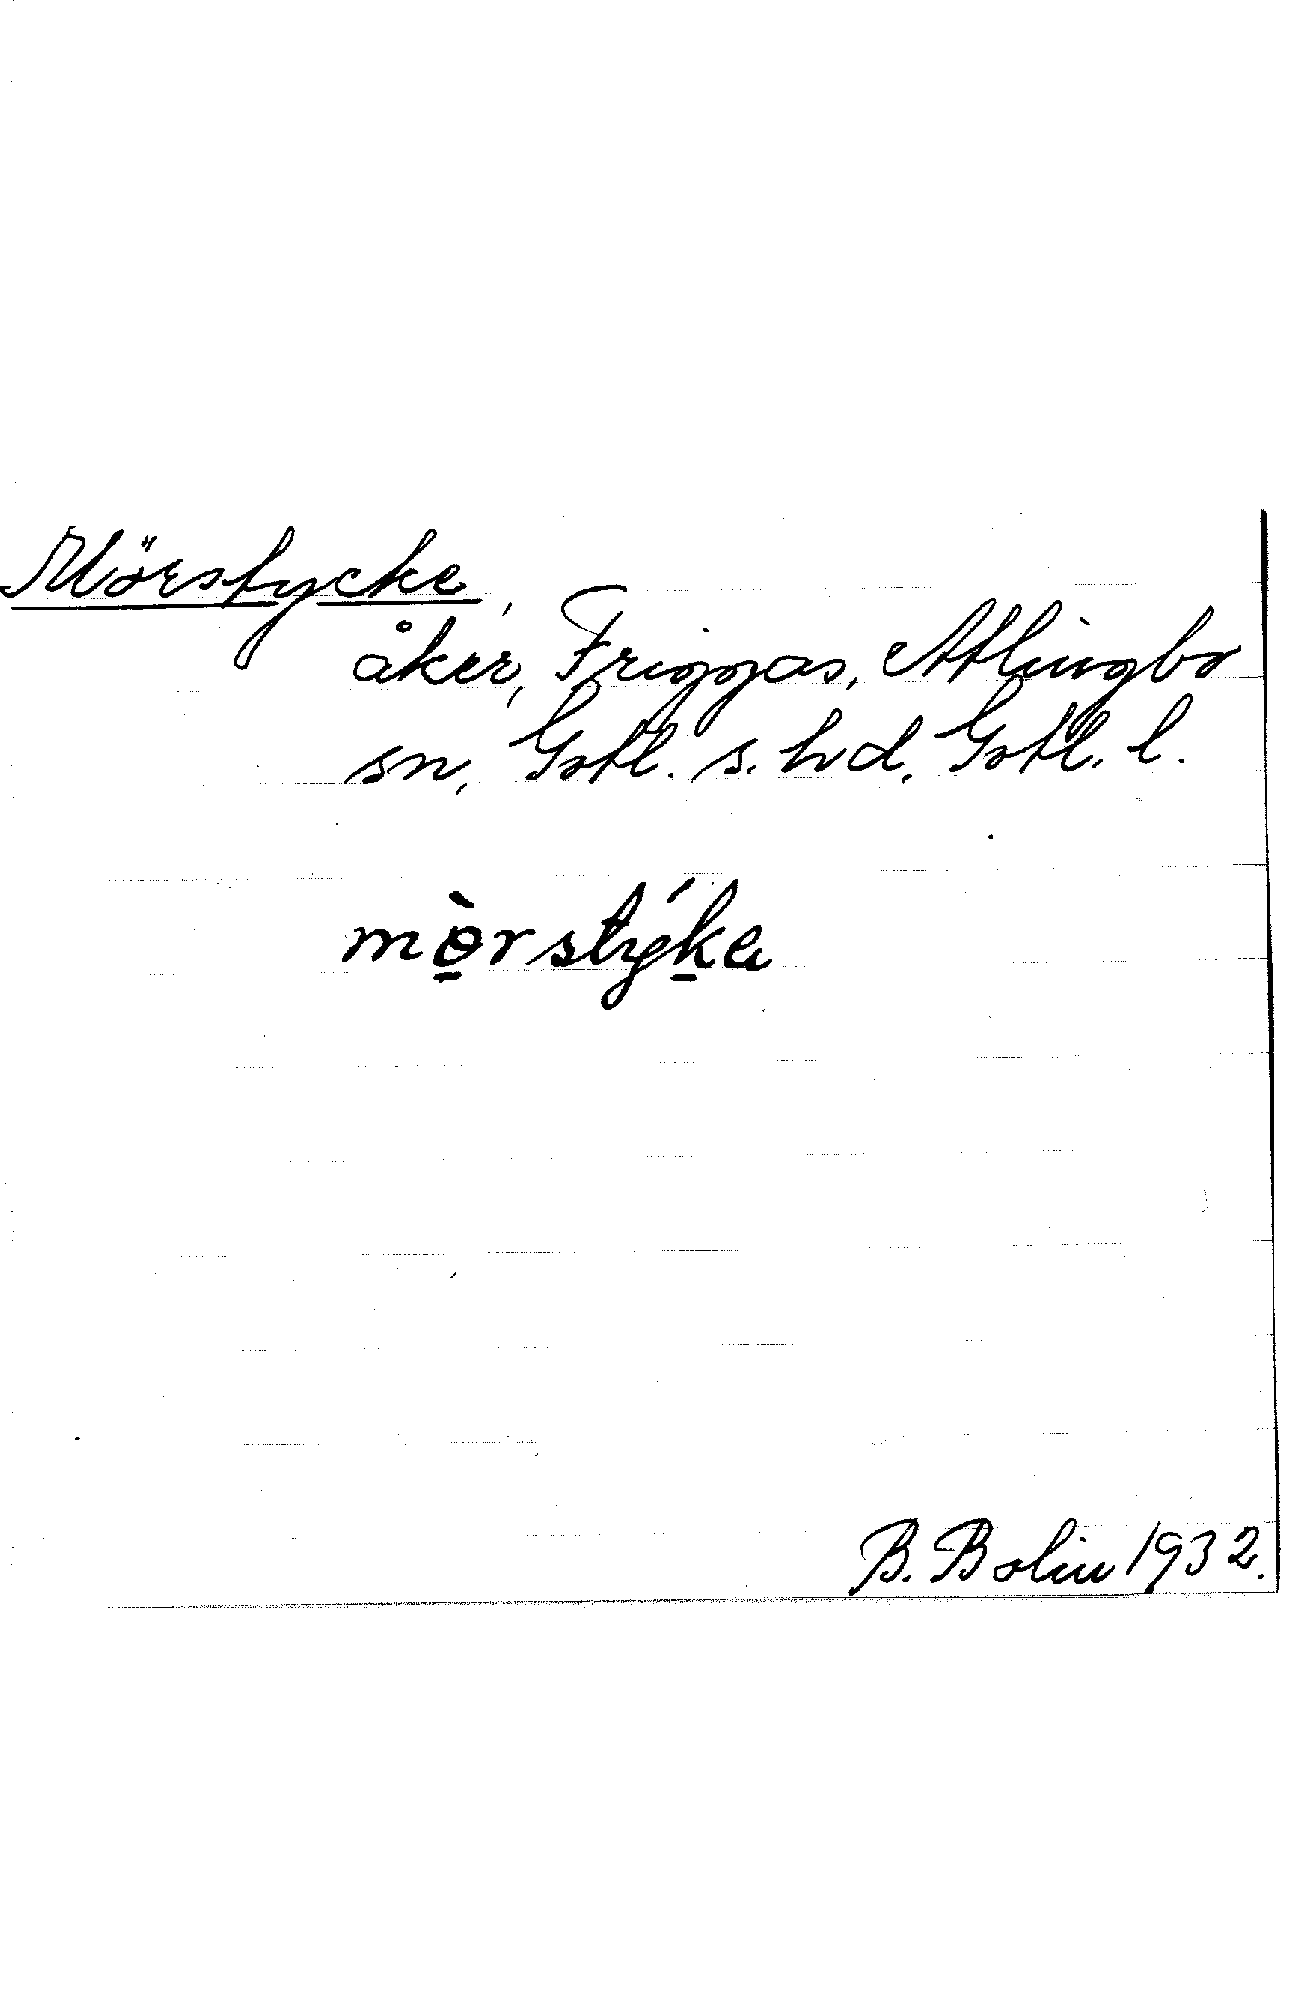 Mörstycke,
åker, Friggas, Atlingbo
sn, Gotl. s. hd, Gotl. l.
mɵ̠̀rstýk̠a
B. Bolin 1932.